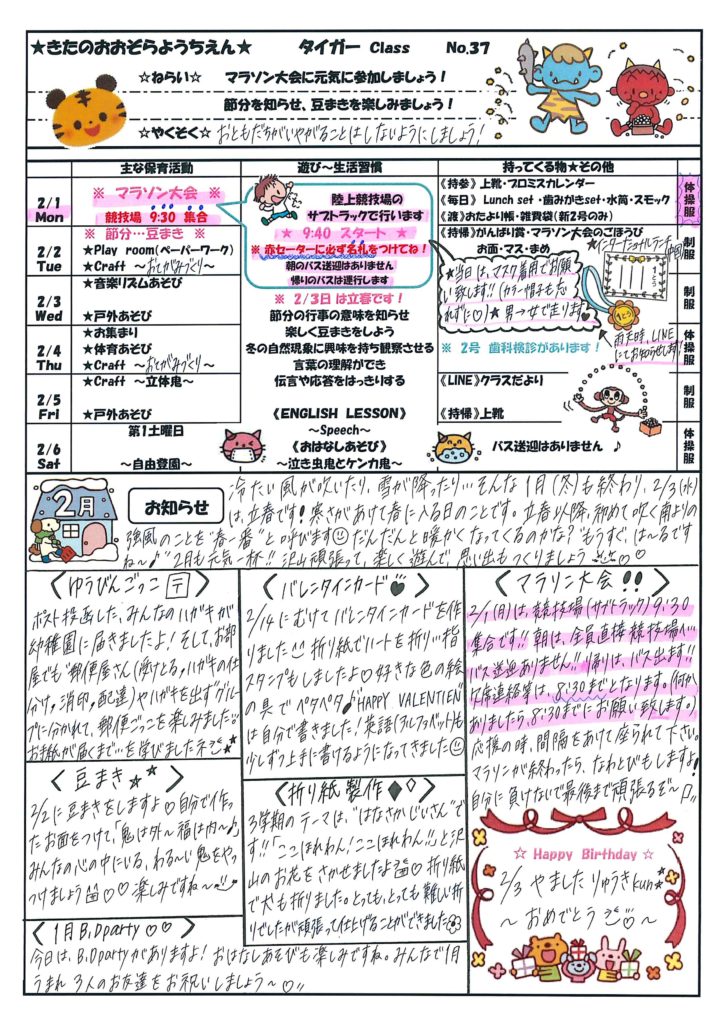 ★きたのおおぞらようちえん★ タイガー Class No.37
☆ねらい☆ マラソン大会に元気に参加しましょう！
節分を知らせ、豆まきを楽しみましょう！
☆やくそく☆ おともだちがいやがることはしないようにしましょう！
主な保育活動 遊び～生活習慣 持ってくる物★その他
2/1 Mon
※ マラソン大会 ※
競技場 9:30 集合
陸上競技場の
サブトラックで行います
※ 9:40 スタート ※
※ 赤セーターに必ず名札をつけてね！
朝のバス送迎はありません
帰りのバスは運行します
《持参》上靴・プロミスカレンダー
《毎日》Lunch set・歯みがきset・水筒・スモック
《渡》おたより帳・雑費袋(新2号のみ)
体操服
2/2 Tue
※ 節分…豆まき ※
★Play room(ペーパーワーク)
★Craft ～おてがみづくり～
《持帰》がんばり賞・マラソン大会のごほうび
お面・マス・まめ
制服
★当日は、マスク着用でお願い致します!!(カラー帽子も忘れずに♡)★男→女で走ります
雨天時、LINEにてお知らせします！
2/3 Wed
★音楽リズムあそび
★戸外あそび
※ 2/3日は立春です！
節分の行事の意味を知らせ
楽しく豆まきをしよう
制服
2/4 Thu
★お集まり
★体育あそび
★Craft ～おてがみづくり～
冬の自然現象に興味を持ち観察させる
言葉の理解ができ
※ 2号 歯科検診があります！
体操服
2/5 Fri
★Craft ～立体鬼～
★戸外あそび
伝言や応答をはっきりする
《ENGLISH LESSON》
～Speech～
《LINE》クラスだより
《持帰》上靴
制服
2/6 Sat
第1土曜日
～自由登園～
《おはなしあそび》
～泣き虫鬼とケンカ鬼～
バス送迎はありません ♪
体操服
2月
お知らせ
冷たい風が吹いたり、雪が降ったり…そんな1月(冬)も終わり、2/3(水)
は、立春です！寒さがあけて春に入る日のことです。立春以降、初めて吹く南よりの
強風のことを"春一番"と呼びます だんだんと暖かくなってくるのかな？"もうすぐ、は～るです
ね～♪" 2月も元気一杯!! 沢山頑張って、楽しく遊んで、思い出もつくりましょう ♡♡
〈ゆうびんごっこ 〒〉
ポスト投函した、みんなのハガキが
幼稚園に届きましたよ！そして、お部
屋でも"郵便屋さん(受けとる,ハガキの仕
分け,消印,配達)やハガキを出すグルー
プに分かれて、郵便ごっこを楽しみました
お手紙が届くまで…を学びましたネ
〈豆まき★★〉
2/2に豆まきをしますよ♡自分で作っ
たお面をつけて、「鬼は外～福は内～♪」
みんなの心の中にいる、わる～い鬼をやっ
つけましょう♡♡楽しみですね～
〈1月B,Dparty♡♡〉
今日は、B,Dpartyがありますよ！おはなしあそびも楽しみですね。みんなで1月
うまれ 3人のお友達をお祝いしましょう～♡
〈バレンタインカード♥〉
2/14にむけてバレンタインカードを作
りました 折り紙でハートを折り…指
スタンプもしましたよ♡好きな色の絵
の具でペタペタ♪"HAPPY VALENTIEN"
は自分で書きました！英語(アルファベット)も
少しずつ上手に書けるようになってきました
〈折り紙製作◆◇〉
3学期のテーマは、"はなさかじいさん"で
す!!「ここほれわん！ここほれわん!!」と沢
山のお花をさかせましたよ 折り紙
で犬も折りました。とっても、とっても難しい折
りでしたが頑張って仕上げることができました
〈マラソン大会!!〉
2/1(月)は、競技場(サブトラック)9:30
集合です!! 朝は、全員直接競技場へ…
バス送迎ありません!! 帰りは、バス出ます!!
欠席連絡等は、8:30までとなります。(何か
ありましたら、8:30までにお願い致します。)
応援の時、間隔をあけて座られて下さい。
マラソンが終わったら、なわとびもしますよ！
自分に負けないで最後まで頑張るぞ～
☆ Happy Birthday ☆
2/3 やました りゅうきkun★
～ おめでとう ♡ ～